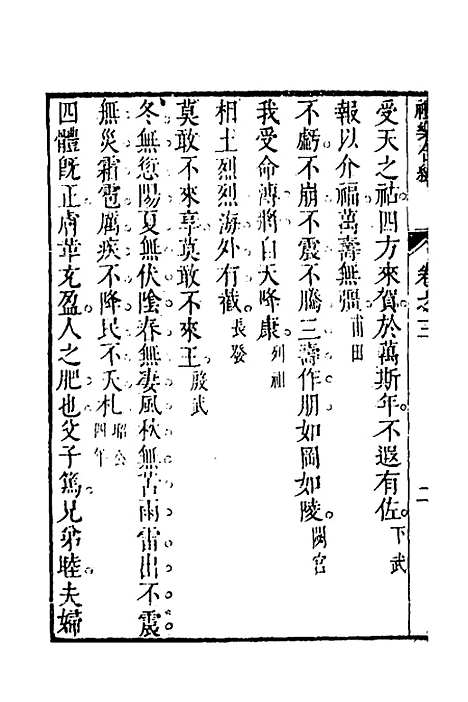 禮樂合編 卷之三 二
受天之祜四方來賀於萬斯年不遐有佐下武
報以介福萬壽無疆甫田
不虧不崩不震不騰三壽作朋如岡如陵閟宮
我受命溥將自天降康列祖
相土烈烈海外有截長發
莫敢不來享莫敢不來王殷武
冬無愆陽夏無伏陰春無凄風秋無苦雨雷出不震
無災霜雹厲疾不降民不夭札昭公四年
四體旣正膚革充盈人之肥也父子篤兄弟睦夫婦